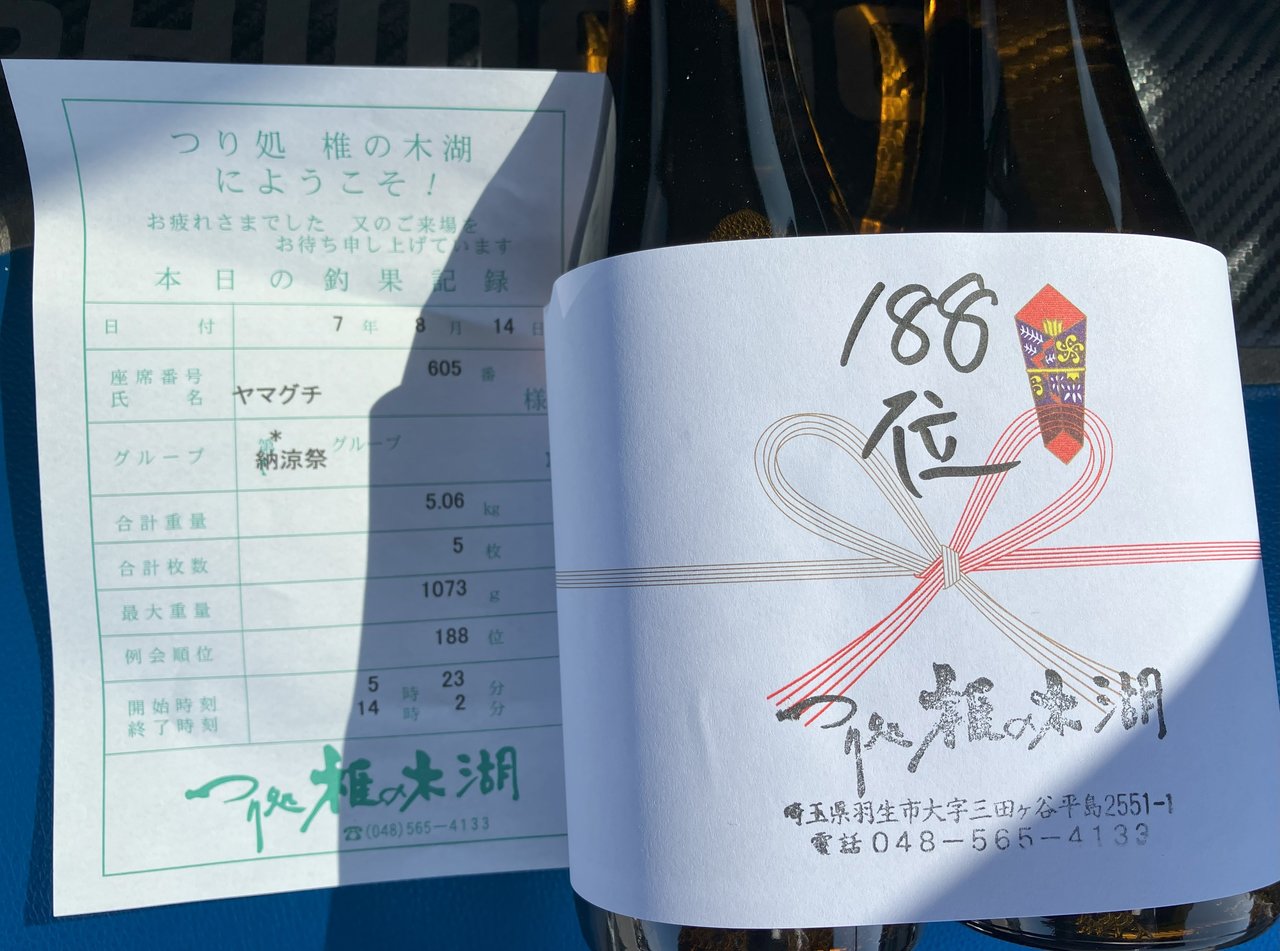 つり処 椎の木湖
にようこそ！
お疲れさまでした 又のご来場を
お待ち申し上げています
本日の釣果記録
日付 7年 8月 14日
座席番号 605番
氏名 ヤマグチ 様
グループ 第*グループ
納涼祭
合計重量 5.06 kg
合計枚数 5 枚
最大重量 1073 g
例会順位 188 位
開始時刻 5時 23分
終了時刻 14時 2分
つり処 椎の木湖
☎(048)565-4133
188
位
つり処 椎の木湖
埼玉県羽生市大字三田ヶ谷平島2551-1
電話048-565-4133